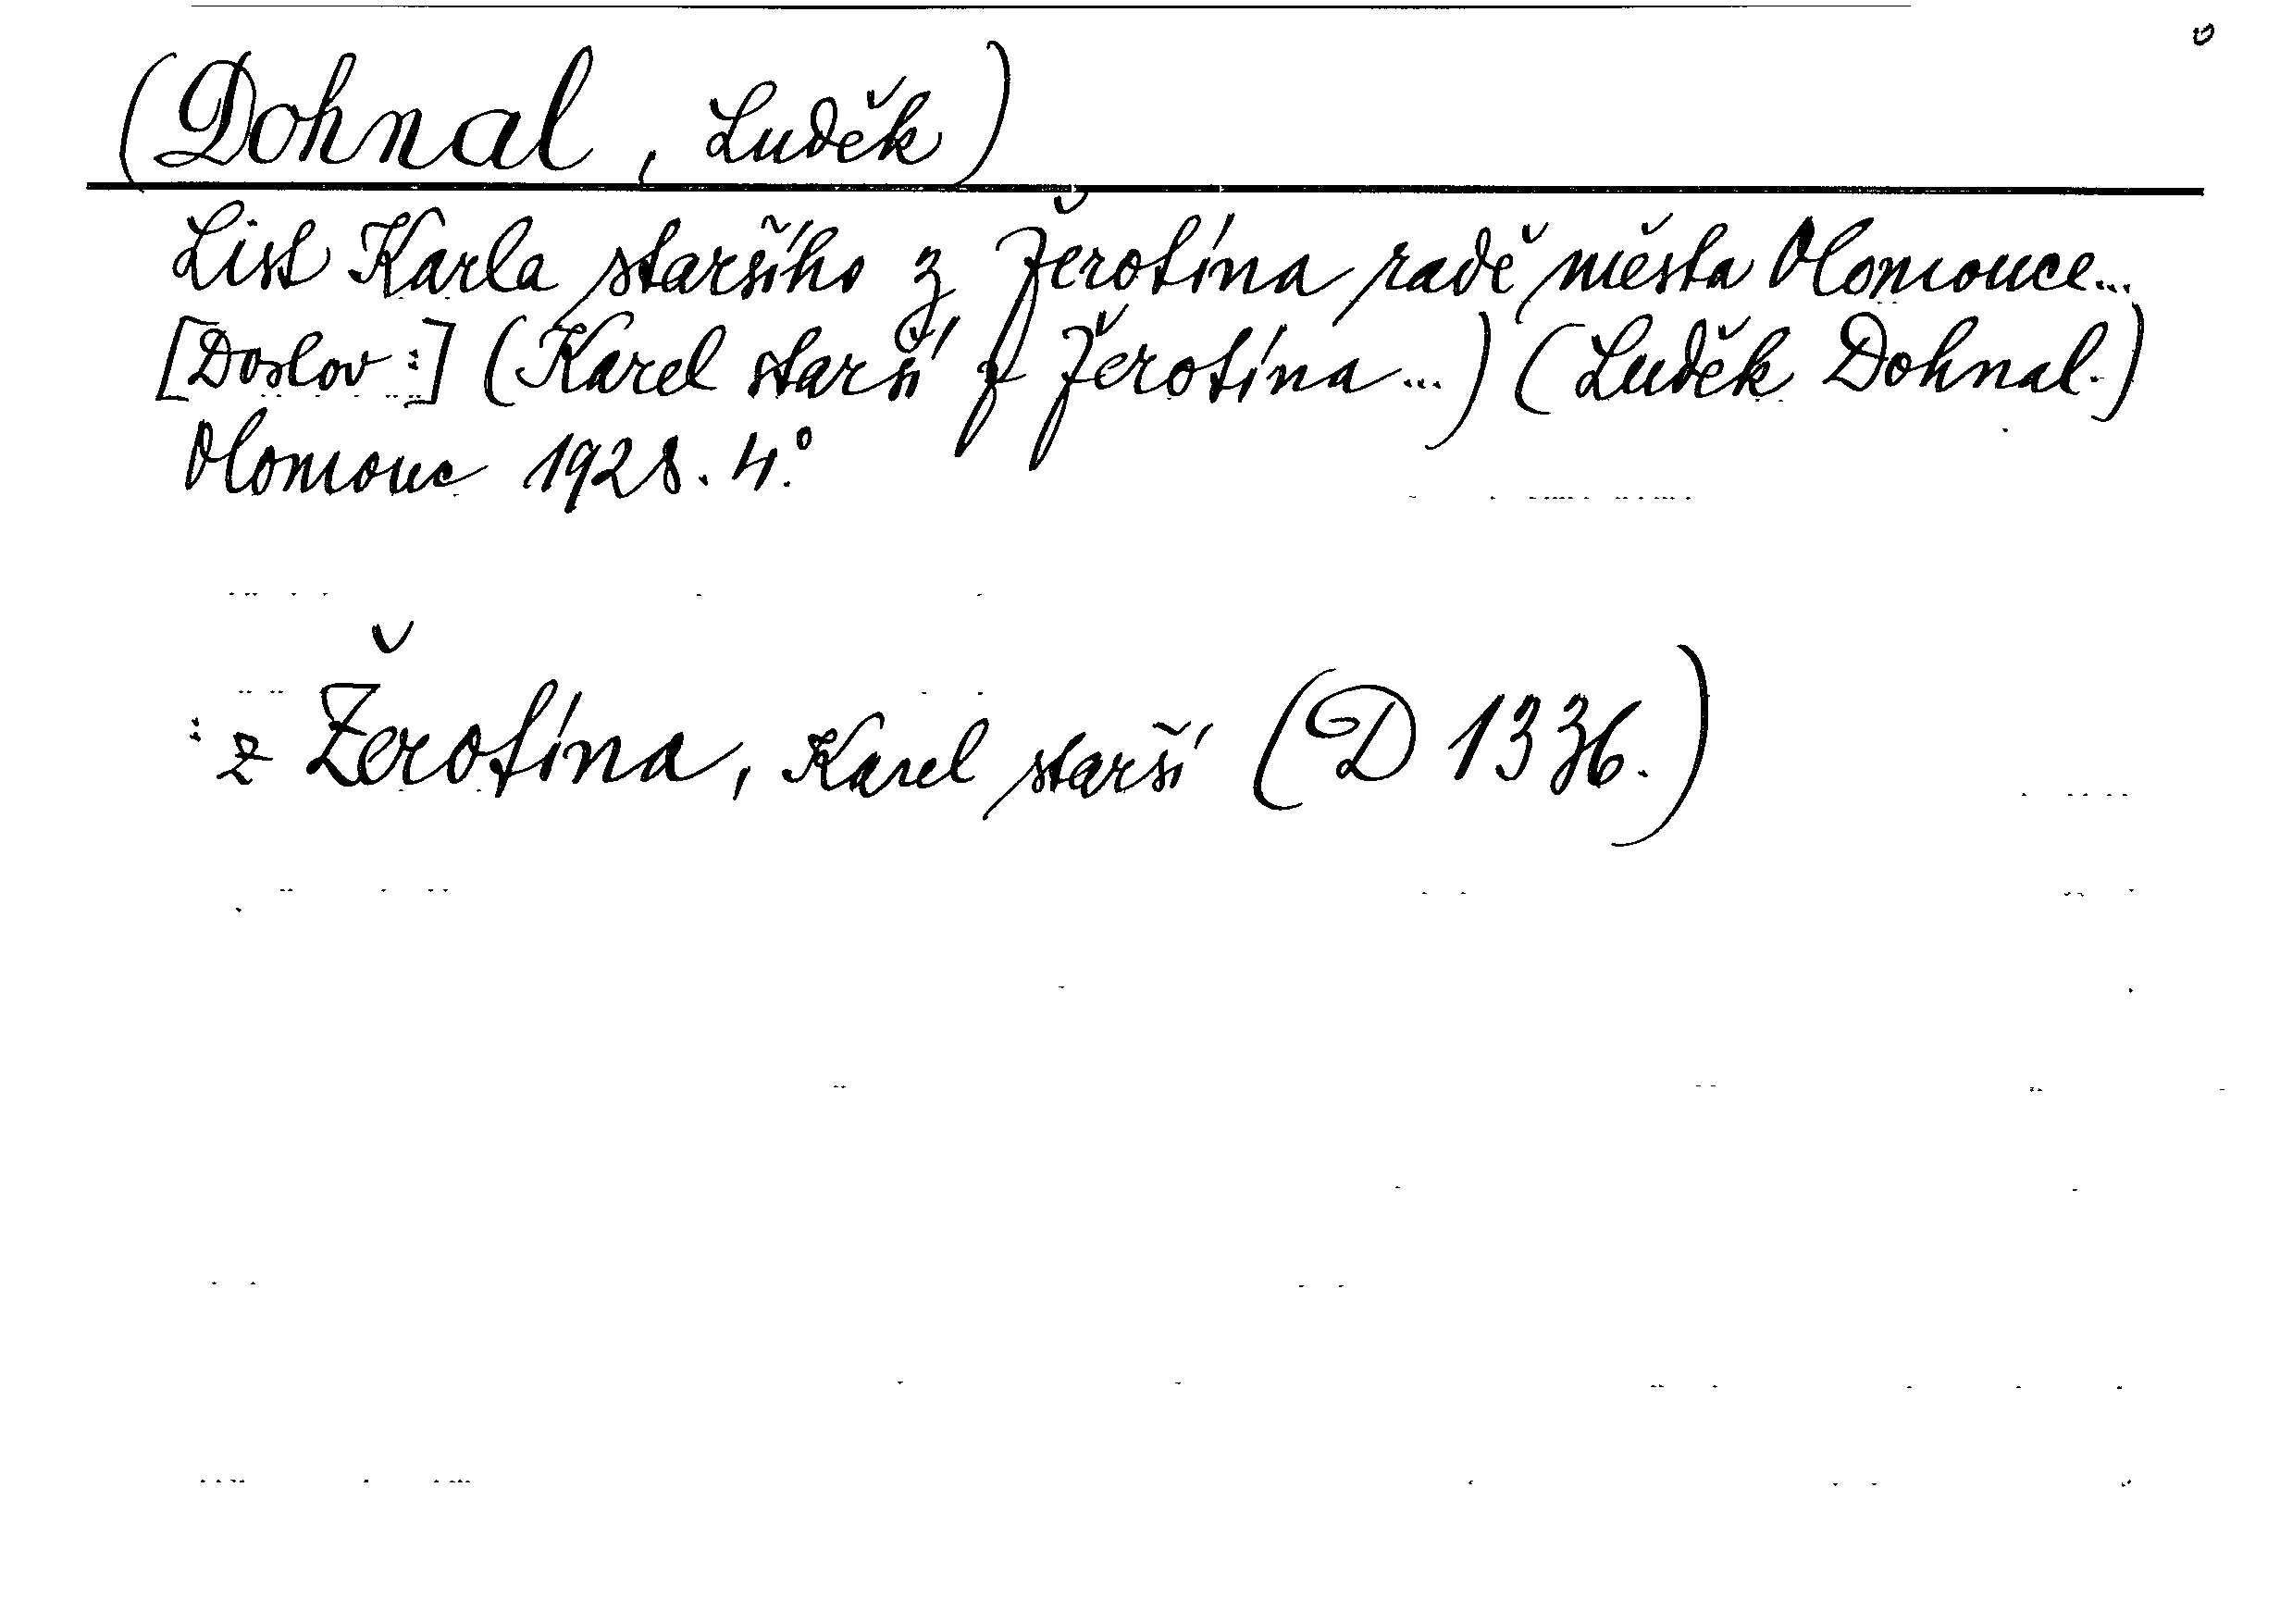 (Dohnal, Luděk)
List Karla staršího z Žerotína radě města Olomouce...
[Doslov:] (Karel starší z Žerotína...) (Luděk Dohnal.)
Olomouc 1928. 4.°
: z Žerotína, Karel starší (D 1336.)